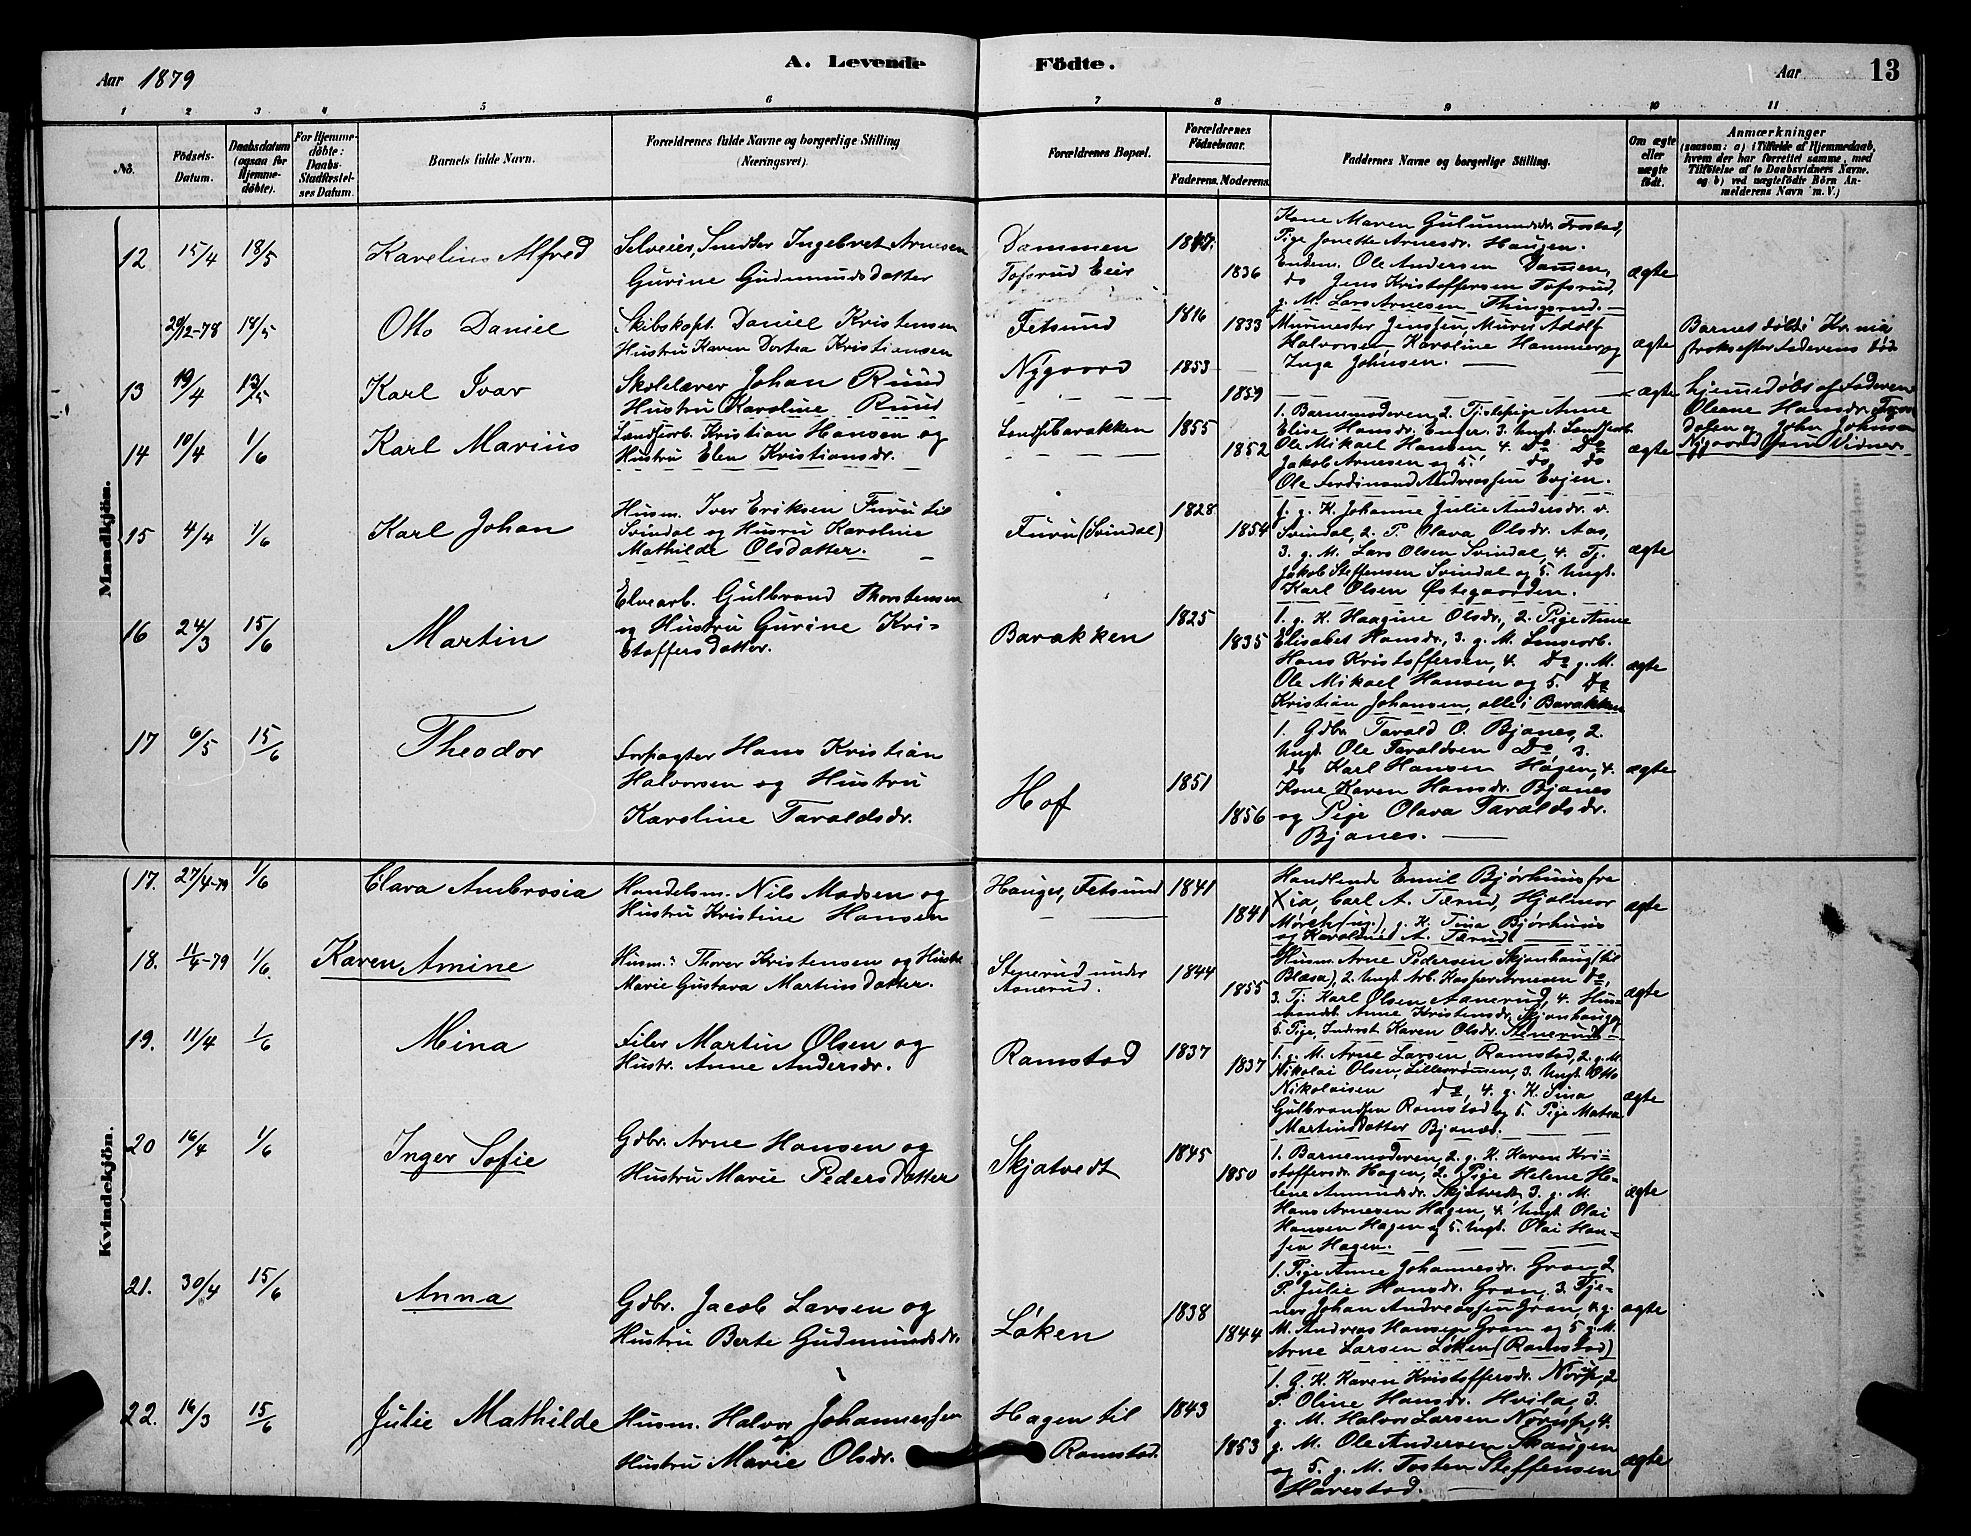 Aar 1879
A. Levende Födte.
Aar 13
1 2 3 4 5 6 7 8 9 10 11
No.
Födsels-Datum.
Daabsdatum (ogsaa for Hjemmedöbte).
For Hjemmedöbte: Daabs-Stadfæstelses Datum.
Barnets fulde Navn.
Forældrenes fulde Navne og borgerlige Stilling (Næringsvei).
Forældrenes Bopæl.
Forældrenes Födselsaar.
Faderens. Moderens.
Faddernes Navne og borgerlige Stilling.
Om ægte eller uægte födt.
Anmærkninger
(saasom: a) i Tilfælde af Hjemmedaab, hvem der har forrettet samme, med Tilföielse af to Daabsvidners Navne, og b) ved uægtefödte Börn Anmelderens Navn m. V.)
Mandkjön.
12 15/4 18/5 Karelius Alfred
Selveier, Snedker Ingebret Arnesen
Gurine Gudmundsdatter
Dammen
Tofsrud Eie
1847. 1836
Kone Maren Gulumndsdr. Frostad,
Pige Janette Arnesdr. Haugen.
Endem. Ole Andersen Damen,
do Jens Kristoffersen Tofsrud,
g. M. Lars Arnesen Thingsrud.
ægte
29/12-78 18/5 Otto Daniel
Skibskapt. Daniel Kristensen
Hustru Karen Dortea Kristiansen
Fetsund
1816 1833
Murmester Jenssen, Murer Adolf
Halvorsen Karoline Hammer og
Inga Johnsen.
ægte
Barnet døbt i Kr.nia
straks efter Faderens død
13 19/4 13/5 Karl Ivar
Skolelærer Johan Ruud
Hustru Karoline Ruud
Nygaard
1853 1859
ægte
hjemmedøbt af Faderen
Oleane Hansdr.
og John Johnsen
Nygaard som Vidner
14 10/4 1/6 Karl Marius
Landsorb. Kristian Hansen og
Hustru Elen Kristiansdr.
Lensebarakken
1855 1852
1. Barnemoderen, 2. Tjstepige Anne
Elise Hansdr. Enger, 3. Ungk. Landsorb.
Ole Mikael Hansen, 4. Do Do
Jakob Arnesen og 5. do do
Ole Ferdinand Andreassen Evjen.
ægte
15 4/4 1/6 Karl Johan
Husm. Iver Eriksen Furu til
Svindal og Husru Karoline
Mathilde Olsdatter.
Furu (Svindal)
1828 1854
1. g. K. Johanne Julie Andersdr. v.
Svindal, 2. P. Olava Olsdr. Aas,
3. g. M. Lars Olsen Svindal, 4. Tj.
Jakob Steffensen Svindal og 5. Ungk.
Karl Olsen Østegaarden.
ægte
16 24/3 15/6 Martin
Elvearb. Gulbrand Thorstensen
og Hustru Gurine Kri-
stoffersdatter.
Barakken
1825 1835
1. g. K. Haagine Olsdr., 2. Pige Anne
Elisabet Hansdr., 3. g. M. Lensearb.
Hans Kristoffersen, 4. Do g. M.
Ole Mikael Hansen og 5. Do
Kristian Johansen, alle i Barakken
ægte
17 6/5 15/6 Theodor
Forpagter Hans Kristian
Halvorsen og Hustru
Karoline Taraldsdr.
Hof
1851 1856
1. Gdbr. Tarald O. Bjanes, 2.
Ungk. Ole Taraldsen Do 3.
do Karl Hansen Høgen, 4.
Kone Karen Hansdr. Bjanes
og Pige Olava Taraldsdr.
Bjanes.
ægte
Kvindekjön.
17. 27/4-79 1/6 Clara Ambrosia
Handelsm. Nils Madsen og
Hustru Kristine Hansen
Hauger, Fetsund
1841 1841
Handlende Emil Bjørhuus fra
Xia, Carl A. Tærud, Hjalmar
Mørch (ug.), g. K. Tina Bjørhuus
og Karoline A. Tærud
ægte
18. 11/4-79 1/6. Karen Amine
Husm. Thorer Kristensen og Hustr.
Marie Gustava Martinsdatter.
Stenerud under
Aanerud.
1844 1855
Husm. Arne Pedersen Skjønhaug til
Blæsa), 2. Ungk. Arb. Kasper Arnesen do,
3. Tj. Karl Olsen Aanerud, 4. Hus-
mandsk. Anne Kristensdr. Skjønhaug og
5. Pige, Inderst. Karen Olsdr. Stenerud
ægte
19. 11/4 1/6 Mina
Eier Martin Olsen og
Hustr. Anne Andersdr.
Ramstad
1837 1837
1. g. M. Arne Larsen Ramstad, 2. g. M.
Nikolai Olsen, Lillerømsen, 3. Ungk. Otto
Nikolaisen do, 4. g. K. Sina
Gulbrandsen Ramstad og 5. Pige Matea
Martinsdatter Bjanæs.
ægte
20 16/4 1/6 Inger Sofie
Gdbr. Arne Hansen og
Hustru Marie Pedersdatter
Skjatvedt
1845 1850
1. Barnemoderen, 2. g. K. Karen Kri-
stoffersdr. Hagen, 2. Pige Helene He-
lene Amundsdr. Skjatvedt, 3. g. M.
Hans Arnesen Hagen, 4. Ungk. Olai
Hansen Hagen og 5. Ungk. Olai Han-
sen Hagen.
ægte
21. 30/4 15/6 Anna
Gdbr. Jacob Larsen og
Hustru Berte Gudmundsdr.
Løken
1838 1844
1. Pige Anne Johannesdr. Gran, 2
P. Julie Hansdr. Gran, 3. Tje-
ner Johan Andreassen Gran, 4. g.
M. Andreas Hansen Gran og 5. g. M.
Arne Larsen Løken (Ramstad)
ægte
22. 16/3 15/6 Julie Mathilde
Husm. Halvor Johannessen
og
Hustru Marie Olsdr.
Hagen til
Ramstad.
1843 1853
1. G. K. Karen Kristoffersdr. Nørsp, 2
P. Oline Hansdr. Hvila, 3.
g. M. Halvor Larsen Nørsp, 4.
g. M. Ole Andersen Skaugen
og 5. g. M. Tosten Steffensen
Harestad.
ægte